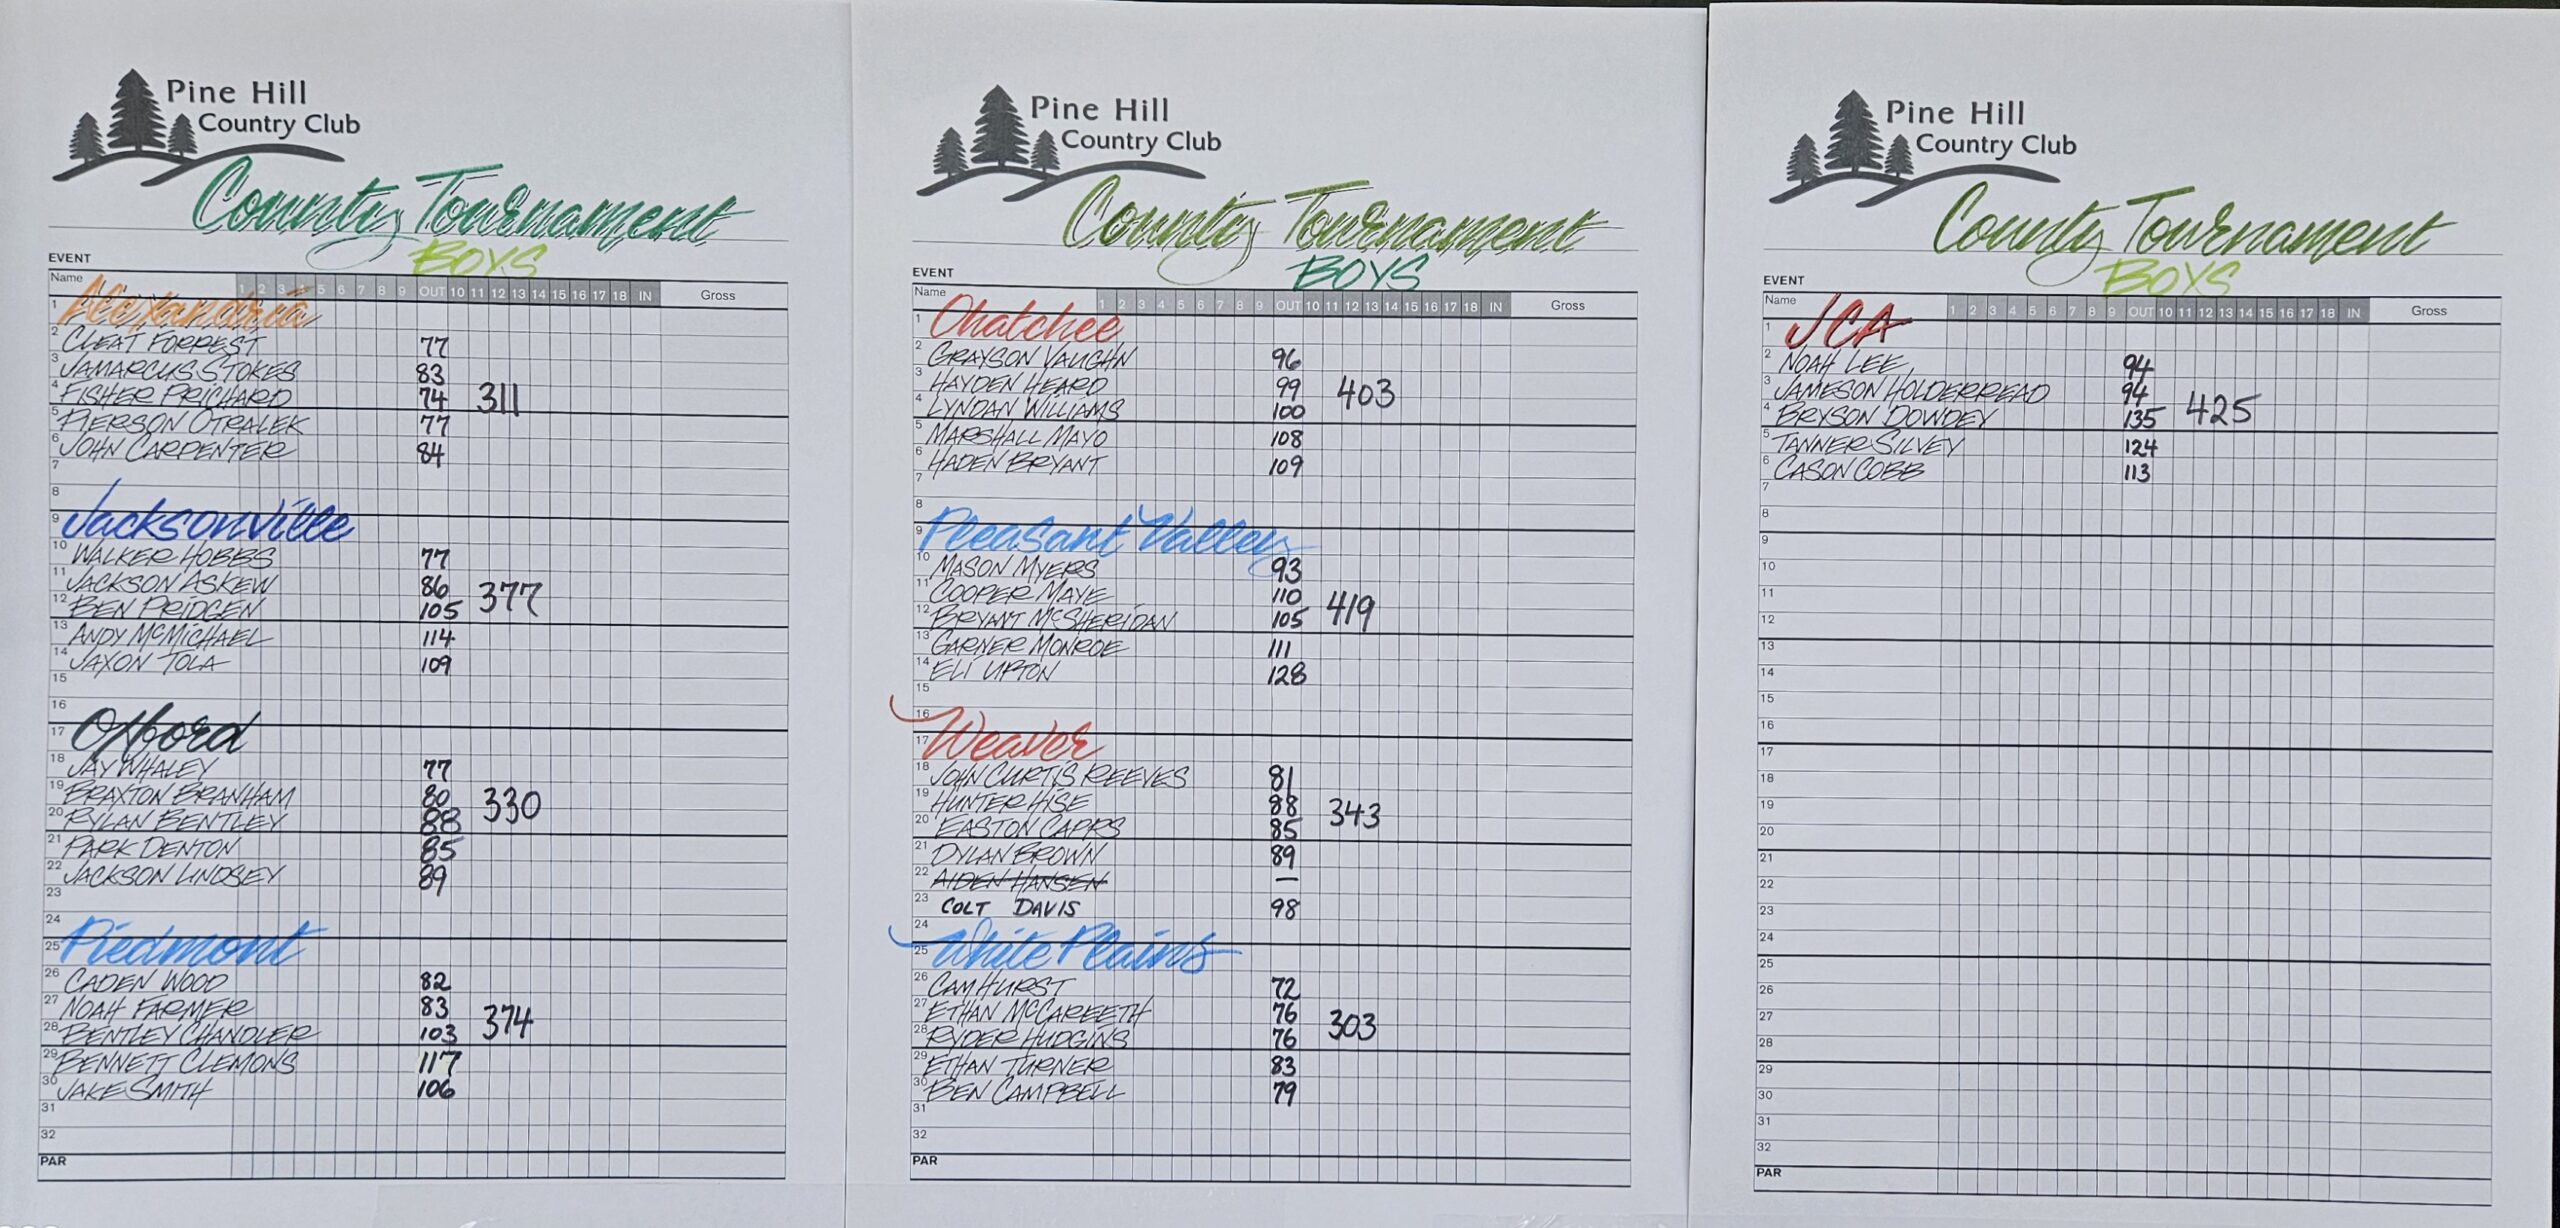 Pine Hill
Country Club
County Tournament
BOYS
EVENT
Name 1 2 3 5 6 7 8 9 OUT 10 11 12 13 14 15 16 17 18 IN Gross
1 Alexandria
2 CLEAT FORREST 77
3 JAMARCUS STOKES 83
4 FISHER PRICHARD 74 311
5 PIERSON OTRALEK 77
6 JOHN CARPENTER 84
7
8
9 Jacksonville
10 WALKER HOBBS 77
11 JACKSON ASKEW 86
12 BEN PRIDGEN 105 377
13 ANDY McMICHAEL 114
14 JAXON TOLA 109
15
16
17 Oxford
18 JAY WHALEY 77
19 BRAXTON BRANHAM 80 330
20 RYLAN BENTLEY 88
21 PARK DENTON 85
22 JACKSON LINDSEY 89
23
24
25 Piedmont
26 CADEN WOOD 82
27 NOAH FARMER 83
28 BENTLEY CHANDLER 103 374
29 BENNETT CLEMONS 117
30 JAKE SMITH 106
31
32
PAR
Pine Hill
Country Club
County Tournament
BOYS
EVENT
Name 1 2 3 4 5 6 7 8 9 OUT 10 11 12 13 14 15 16 17 18 IN Gross
1 Ohatchee
2 GRAYSON VAUGHN 96
3 HAYDEN HEARD 99 403
4 LYNDAN WILLIAMS 100
5 MARSHALL MAYO 108
6 HADEN BRYANT 109
7
8
9 Pleasant Valley
10 MASON MYERS 93
11 COOPER MAYE 110
12 BRYANT McSHERIDAN 105 419
13 GARNER MONROE 111
14 ELI UPTON 128
15
16 Weaver
17
18 JOHN CURTIS REEVES 81
19 HUNTER HISE 88
20 EASTON CAPPS 85 343
21 DYLAN BROWN 89
22 AIDEN HANSEN —
23 COLT DAVIS 98
24
25 White Plains
26 CAM HURST 72
27 ETHAN McCAREETH 76
28 RYDER HUDGINS 76 303
29 ETHAN TURNER 83
30 BEN CAMPBELL 79
31
32
PAR
Pine Hill
Country Club
County Tournament
BOYS
EVENT
Name 1 2 3 4 5 6 7 8 9 OUT 10 11 12 13 14 15 16 17 18 IN Gross
1 JCA
2 NOAH LEE 94
3 JAMESON HOLDERREAD 94
4 BRYSON DOWDEY 135 425
5 TANNER SILVEY 124
6 CASON COBB 113
7
8
9
10
11
12
13
14
15
16
17
18
19
20
21
22
23
24
25
26
27
28
29
30
31
32
PAR